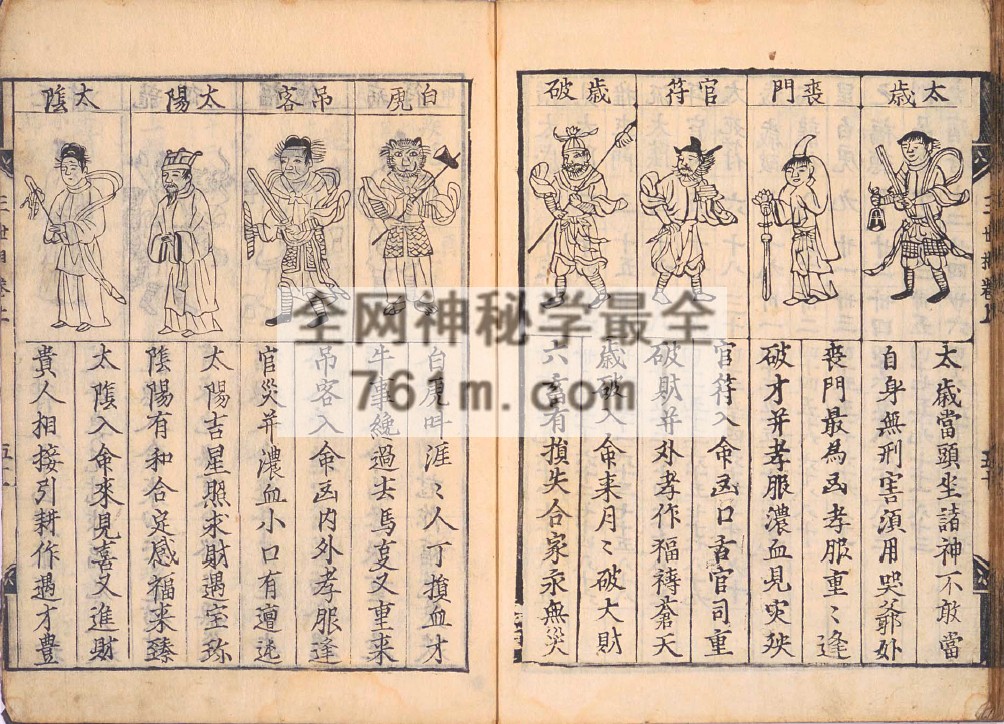 太歲
喪門
官符
歲破
太歲當頭坐諸神不敢當
自身無刑害須用哭爺
喪門最為凶孝服重〻逢
破才并孝服濃血見灾殃
官符入命凶口舌官司重
破財并外孝作福禱蒼天
歲破入命来月〻破大財
六畜有損失合家永無災
三世相卷上
五十
白虎
吊客
太陽
太陰
白虎叫涯〻人丁損血才
牛事纔過去馬又重来
吊客入命凶内外孝服逢
官災并濃血小口有邅迍
太陽吉星照求財遇宝珎
陰陽有和合定感福来臻
太陰入命來見喜又進財
貴人相接引耕作遇才豊
三世相卷上
全网神秘学最全
761m.com